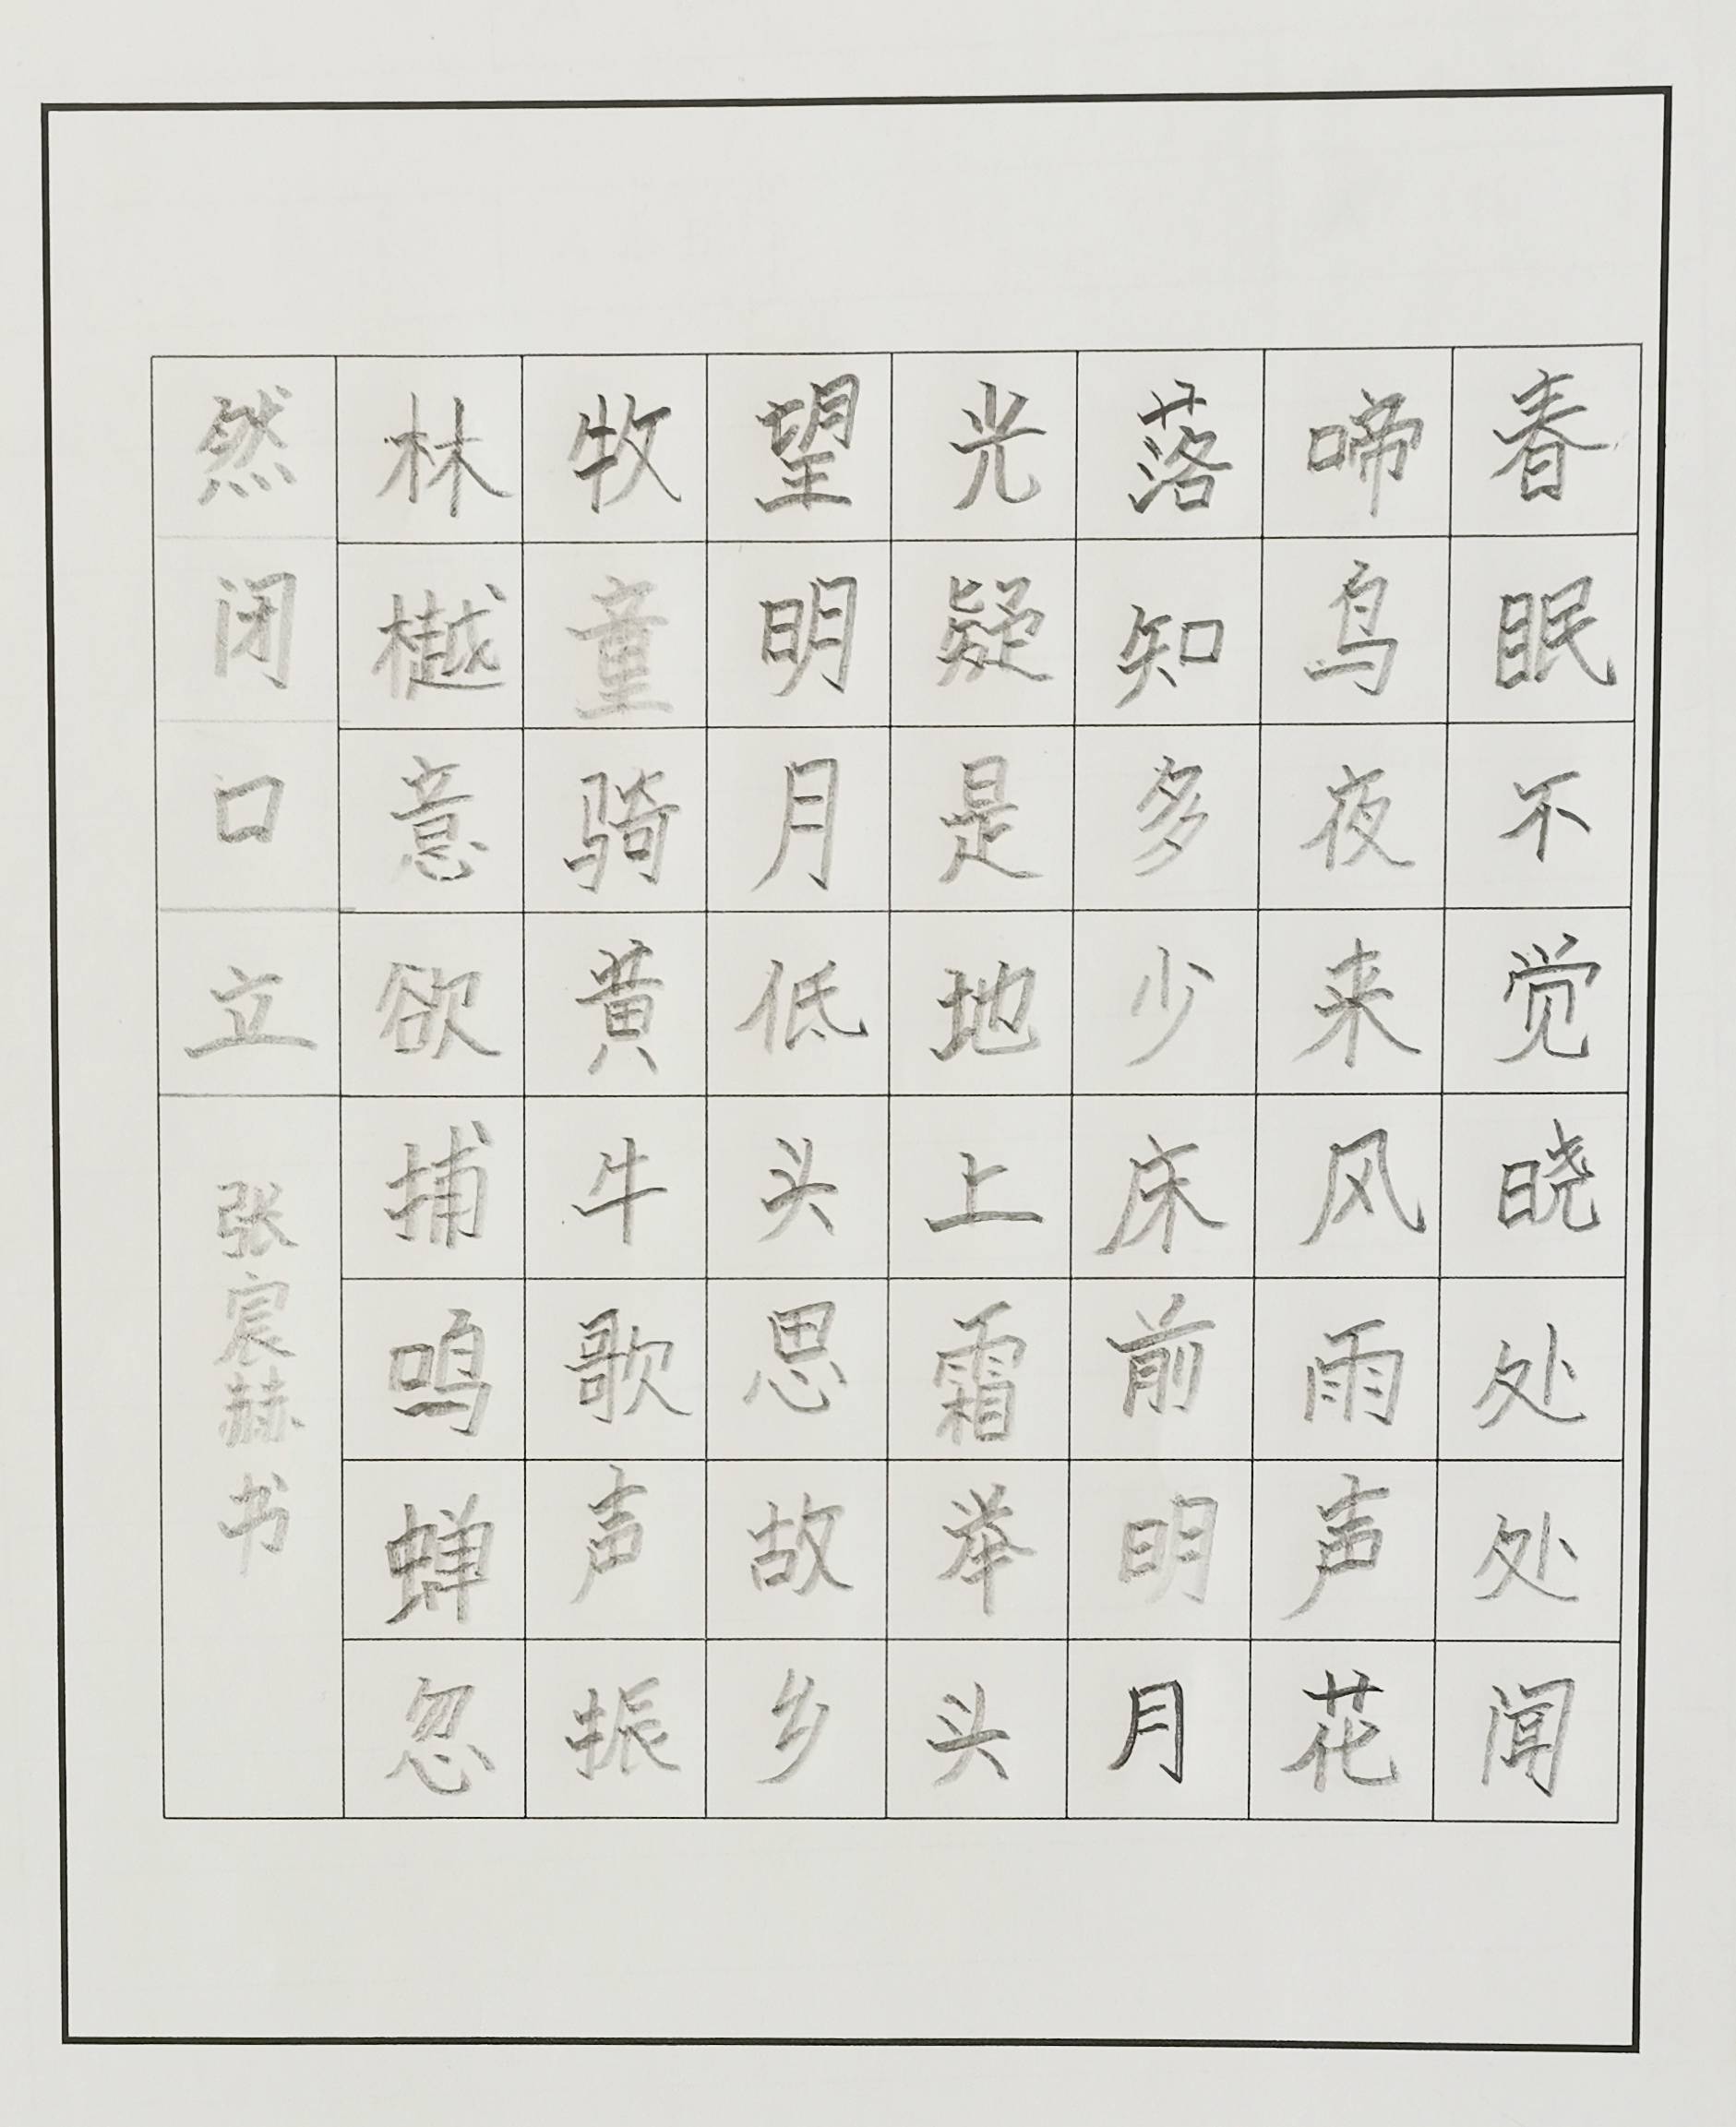 春眠不觉晓处处闻
啼鸟夜来风雨声花
落知多少床前明月
光疑是地上霜举头
望明月低头思故乡
牧童骑黄牛歌声振
林樾意欲捕鸣蝉忽
然闭口立
张宸赫书